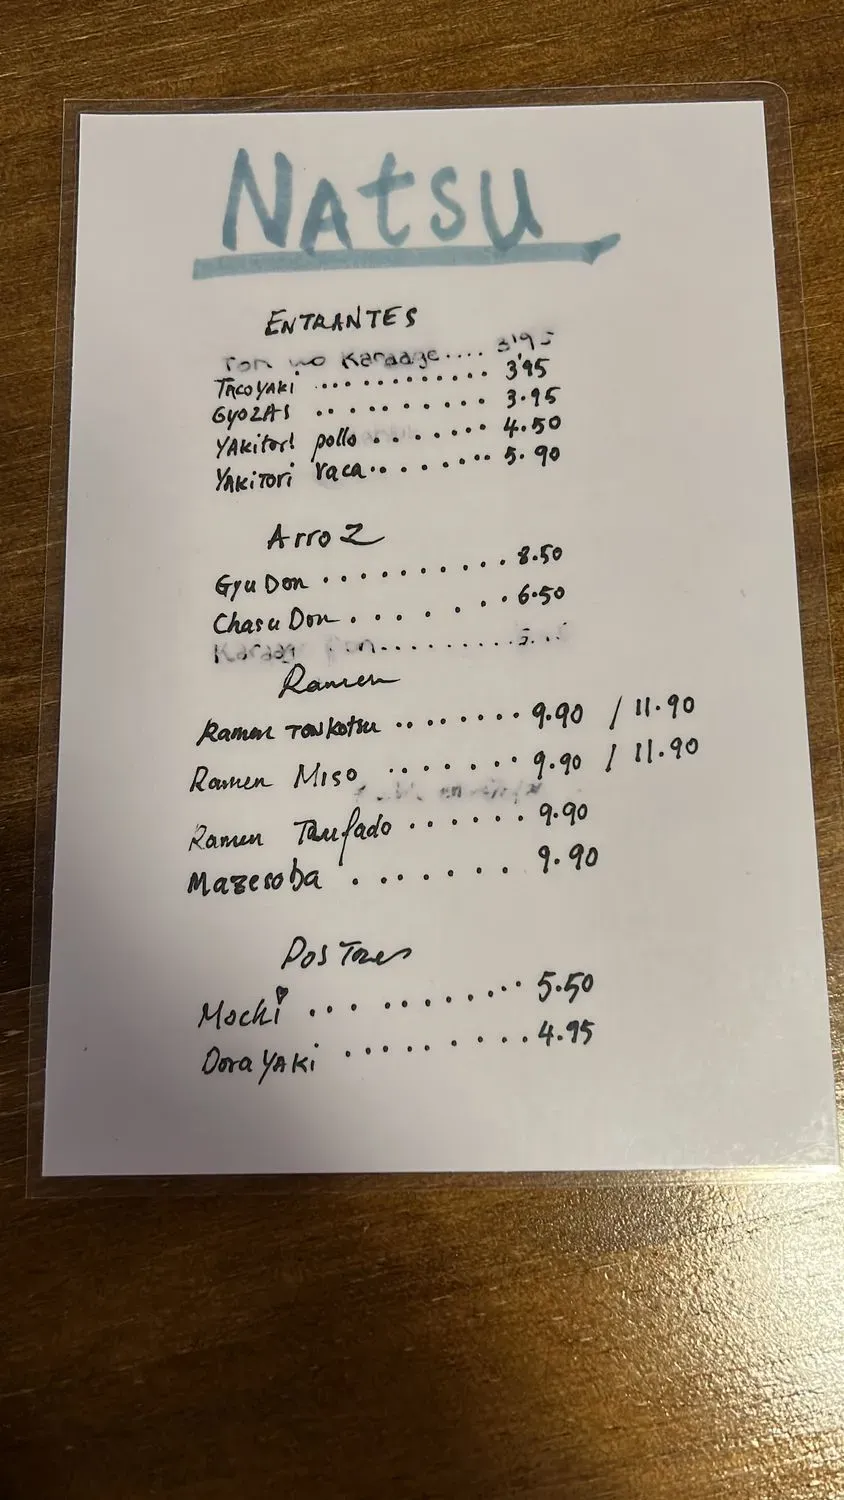 NAtSU
ENTRANTES
Tori no Karaage.... 3'95
TACOYAKI ............ 3'95
GYOZAS .......... 3.95
YAKitori pollo ........ 4.50
YAKITORI vaca......... 5.90
ArroZ
Gyu Don .......... 8.50
Chasu Don ....... 6.50
Karaage Don..........
Ramen
Ramen TONKotsu ........ 9.90 / 11.90
Ramen Miso ........ 9.90 / 11.90
Ramen Trufado ...... 9.90
Mazesoba ....... 9.90
PosTres
Mochi ........... 5.50
DoraYAKi ......... 4.95